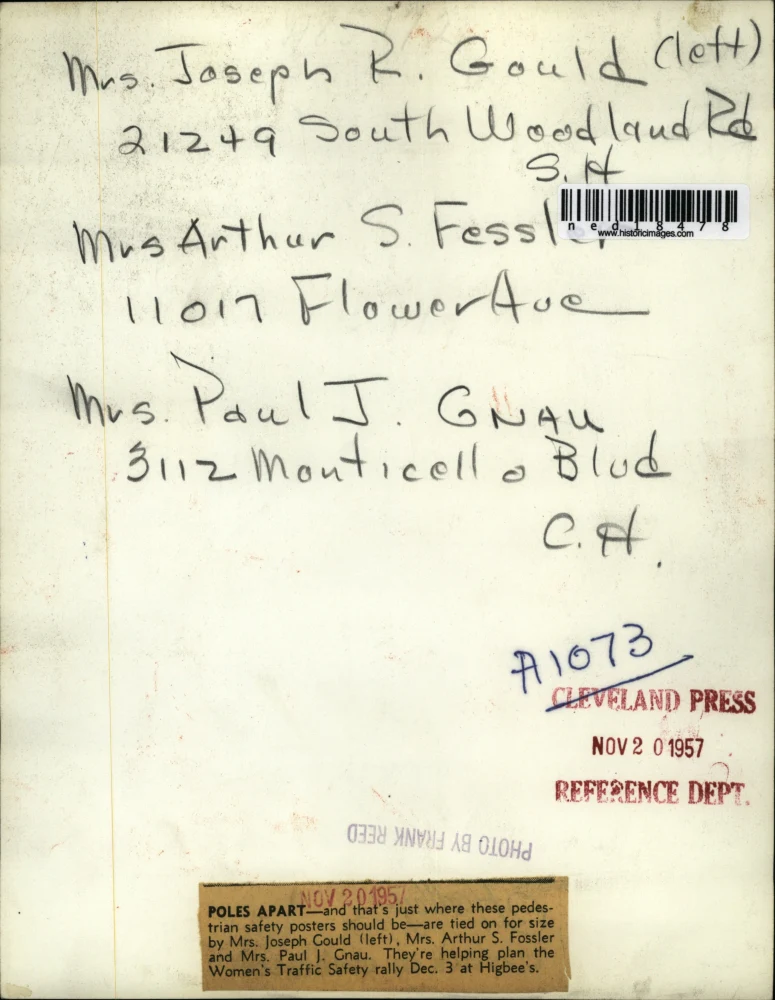 Mrs. Joseph R. Gould (left)
21249 South Woodland Rd
S.H
Mrs Arthur S. Fessler
11017 Flower Ave
ned18478
www.historicimages.com
Mrs. Paul J. GNAU
3112 Monticello Blvd
C.H.
A1073
CLEVELAND PRESS
NOV 20 1957
REFERENCE DEPT.
PHOTO BY FRANK REED
NOV 20 1957
POLES APART—and that's just where these pedes-
trian safety posters should be—are tied on for size
by Mrs. Joseph Gould (left), Mrs. Arthur S. Fossler
and Mrs. Paul J. Gnau. They're helping plan the
Women's Traffic Safety rally Dec. 3 at Higbee's.